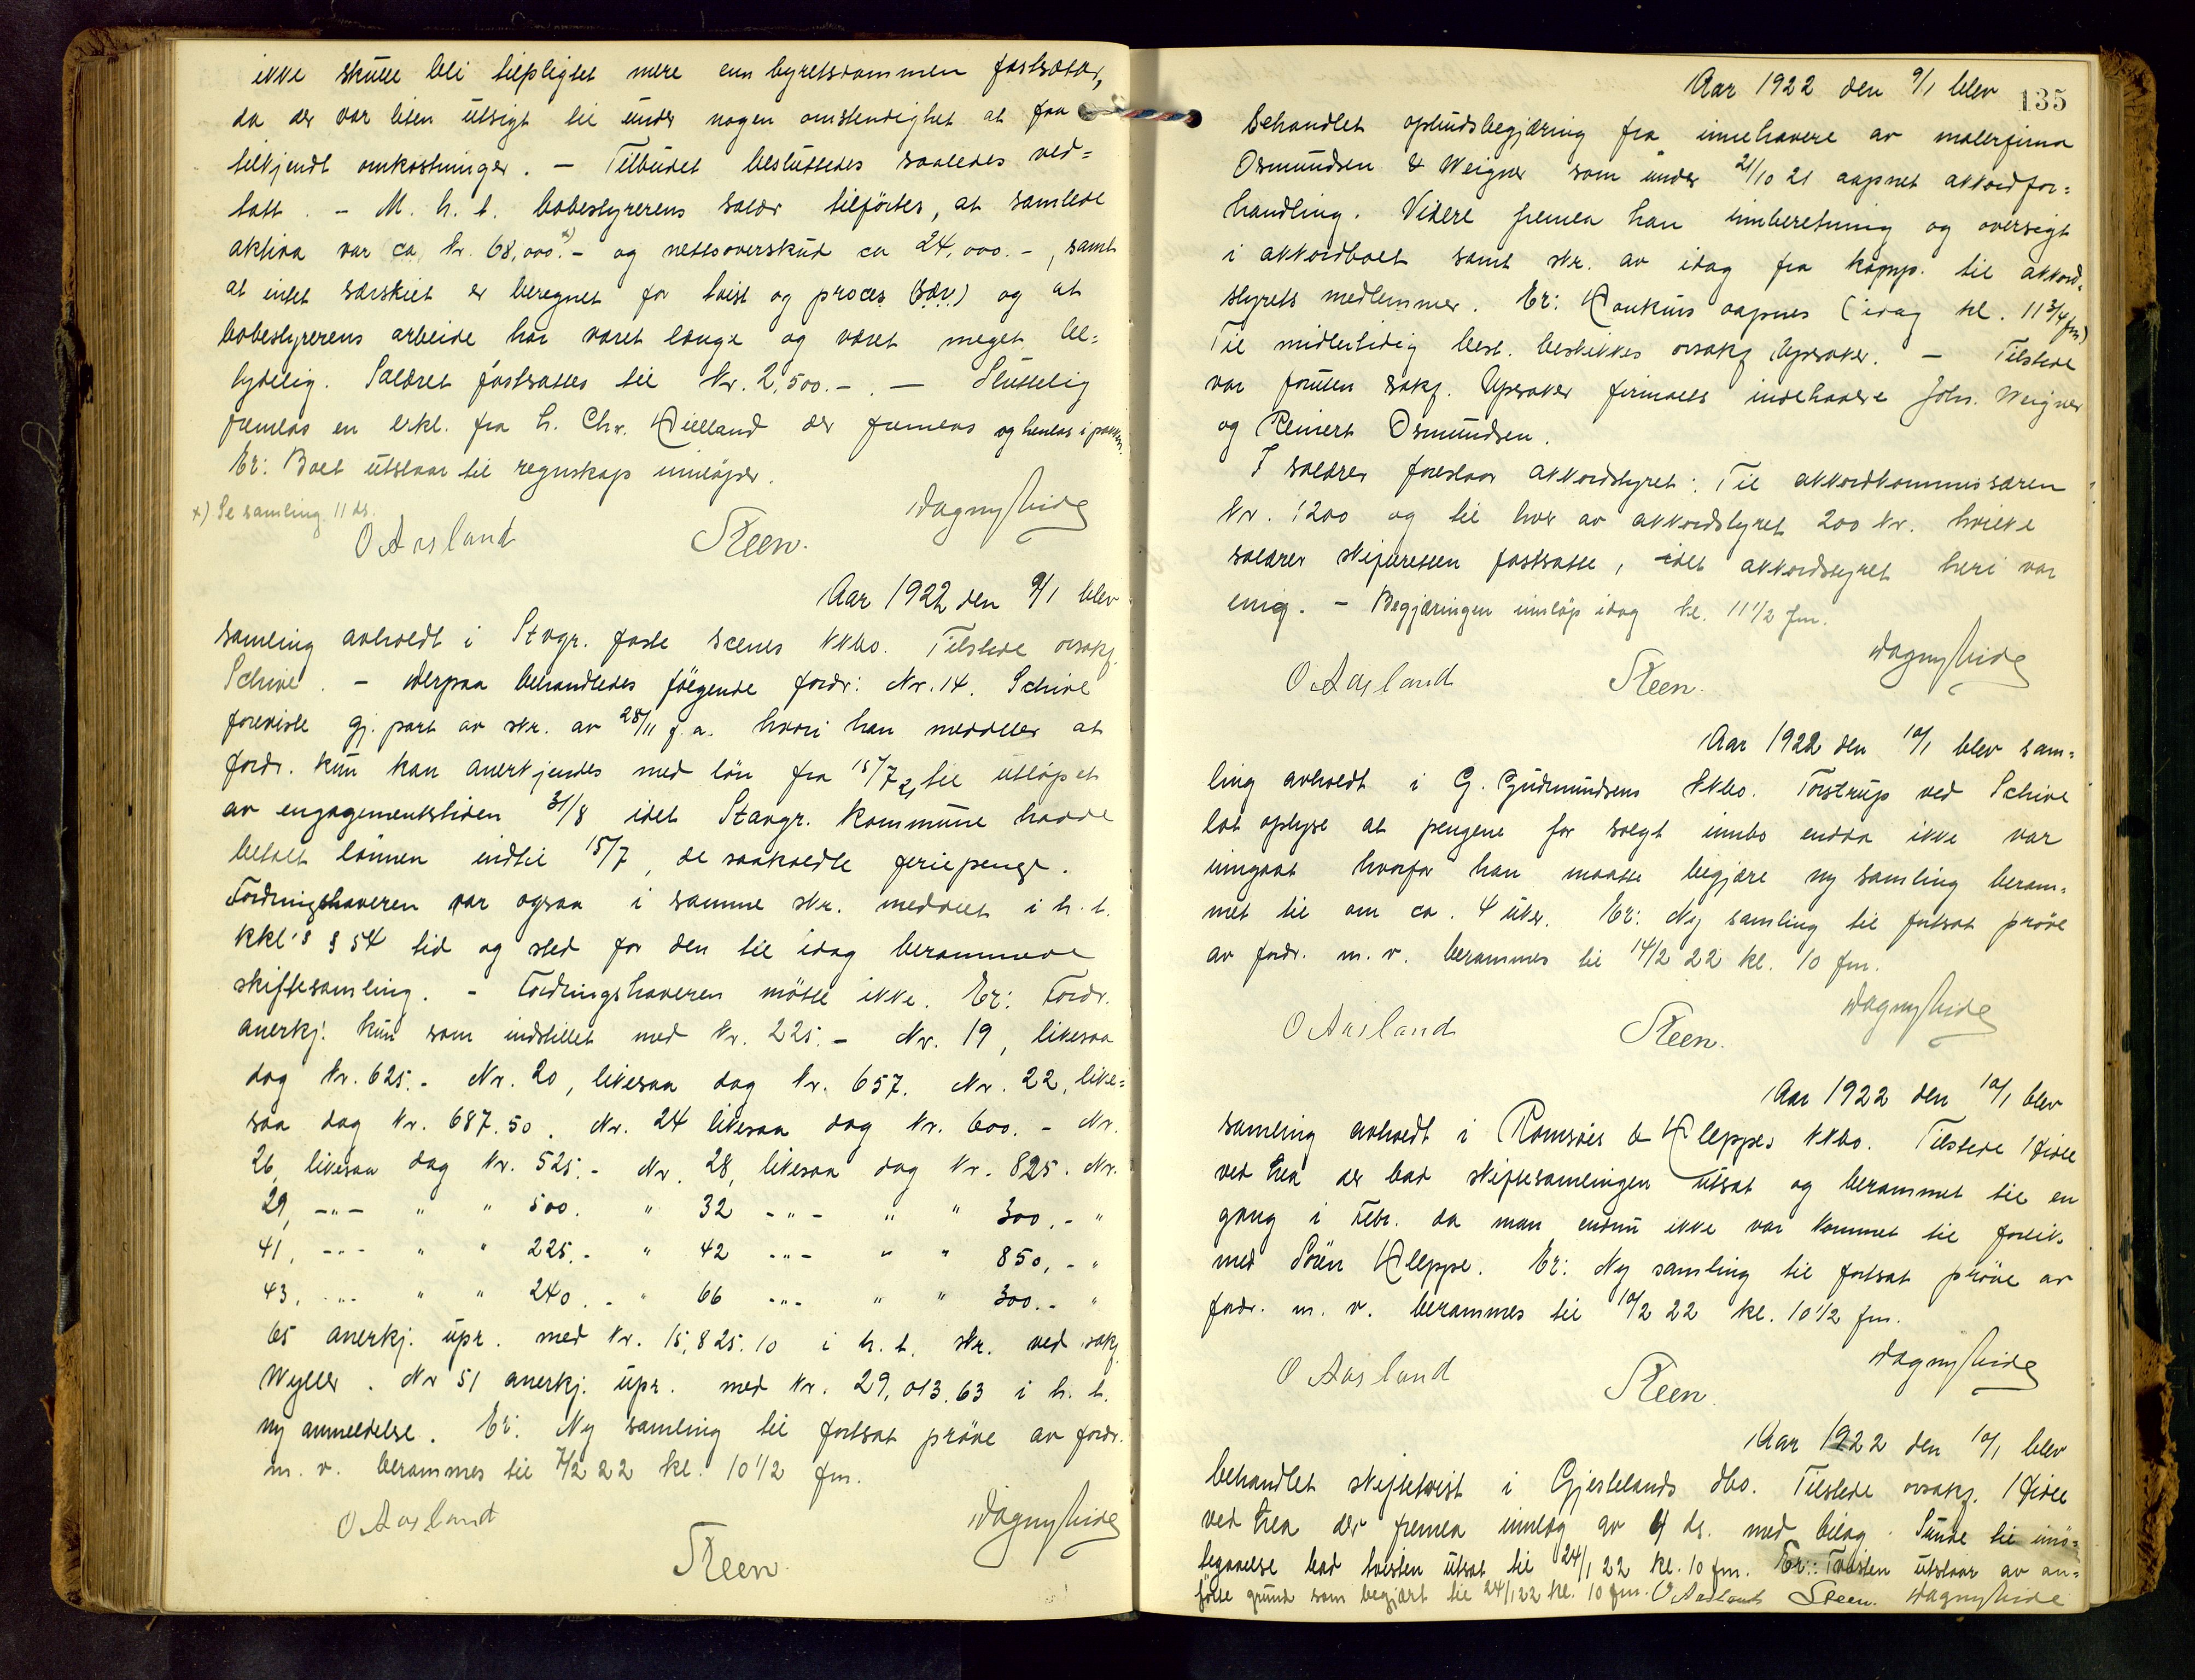 ikke skulle bli tilpligtet mere enn byretsdommen fastsætter,
da der var liten utsigt til under nogen omstendighet at faa
tilkjendt omkostninger. – Tilbudet besluttedes saaledes ved=
tatt. – M. h. t. bobestyrerens salær tilførtes, at samlede
aktiva var ca kr. 68,000 x) - og nettooverskud ca 24,000.-, samt
at intet særskilt er beregnet for tvist og proces og at
bobestyrerens arbeide har varet længe og været meget be=
tydelig. Salæret fastsattes til kr. 2,500.-. – Sluttelig
fremlas en erkl. fra h. Chr. Kielland der fremlas og henlas i pakken.
Er: Boet utstaar til regnskap innløper.
x) Se samling 11 ds.
O Aasland Steen. Dagny Eide
Aar 1922 den 9/1 blev
samling avholdt i Stvgr. faste scenes kkbo. Tilstede orsakf.
Schive. – Derpaa behandledes følgende fordr: Nr. 14. Schive
foreviste gj. part av skr. av 28/11 f.a. hvori han meddeler at
fordr. kun kan anerkjendes med løn fra 15/7 21 til utløpet
av engagementstiden 31/8 idet Stavgr. kommune hadde
betalt lønnen indtil 15/7, de saakaldte feriepenge.
Fordringshaveren var ogsaa i samme skr. meddelt i h. t.
kkl's § 54 tid og sted for den til idag berammede
skiftesamling. – Fordringshaveren møtte ikke. Er: Fordr.
anerkj. kun som indstillet med kr. 225.- Nr. 19, likesaa
dog kr. 625.- Nr. 20, likesaa dog kr. 657. Nr. 22, like=
saa dog kr. 687.50. Nr. 24 likesaa dog kr. 600. - Nr.
26, likesaa dog kr. 525.- Nr. 28, likesaa dog kr. 825. Nr.
29, -"- " " 500. " 32 -"- " " 300.- "
41, -"- " " 225.- " 42 -"- " " 850,- "
43, -"- " " 240.- " 66 -"- " " 300.- "
65 anerkj. upr. med kr. 15,825.10 i h. t. skr. ved sakf.
Wyller. Nr 51 anerkj. upr. med kr. 29,013.63 i h. t.
ny anmeldelse. Er: Ny samling til fortsat prøve av fordr.
m. v. berammes til 7/2 22 kl. 10 1/2 fm.
O Aasland Steen. Dagny Eide
135
Aar 1922 den 9/1 blev
behandlet opbudsbegjæring fra innehavere av malerfirma
Osmundsen & Weigner som under 21/10 21 aapnet akkordfor=
handling. Videre fremla han innberetning og oversigt
i akkordboet samt skr. av idag fra kapp. til akkord=
styrets medlemmer. Er: Konkurs aapnes (idag kl. 11 3/4 fm)
Til midlertidig best. beskikkes orsakf Opsaker. – Tilstede
var foruten sakf. Opsaker firmaets indehavere Joh. Weigner
og Reinert Osmundsen.
I salærer foreslaar akkordstyret: Til akkordkommissæren
kr. 1200 og til hver av akkordstyret 200 kr. hvilke
salærer skifteretten fastsatte, idet akkordstyret heri var
enig. – Begjæringen innløp idag kl. 11 1/2 fm.
O Aasland Steen. Dagny Eide
Aar 1922 den 10/1 blev sam=
ling avholdt i G. Gudmundsens kkbo. Torstrup ved Schive
lot oplyse at pengene for solgt innbo endda ikke var
inngaat hvorfor han maatte begjære ny samling beram=
met til om ca. 4 uker. Er: Ny samling til fortsat prøve
av fordr. m. v. berammes til 14/2 22 kl. 10 fm.
O Aasland Steen. Dagny Eide
Aar 1922 den 10/1 blev
samling avholdt i Ramsøis & Kleppes kkbo. Tilstede
ved der bad skiftesamlingen utsat og berammet til en
gang i Febr. da man endnu ikke var kommet til forlik
med Sørn Kleppe. Er: Ny samling til fortsat prøve av
fordr. m. v. berammes til 10/2 22 kl. 10 1/2 fm.
O Aasland Steen. Dagny Eide
Aar 1922 den 10/1 blev
behandlet skiftetvist i Gjestelands dbo. Tilstede orsakf.
ved der fremla innlæg av 9 ds. med bilag. Sunde til imø=
tegaaelse bad tvisten utsat til 24/1 22 kl. 10 fm. Er: Tvisten utstaar av an=
førte grund som begjært til 24/1 22 kl. 10 fm. O Aasland Steen. Dagny Eide